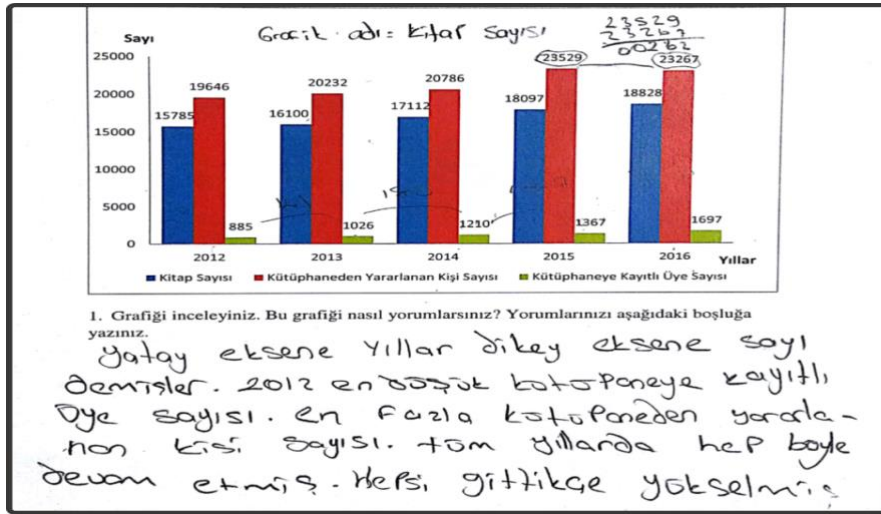 Sayı
Grafik adı = Kitap sayısı
23529
23267
00262
25000
20000
15000
10000
5000
0
15785 19646 885
16100 20232 1026
17112 20786 1210
18097 23529 1367
18828 23267 1697
2012 2013 2014 2015 2016 Yıllar
Kitap Sayısı Kütüphaneden Yararlanan Kişi Sayısı Kütüphaneye Kayıtlı Üye Sayısı
1. Grafiği inceleyiniz. Bu grafiği nasıl yorumlarsınız? Yorumlarınızı aşağıdaki boşluğa
yazınız.
Yatay eksene Yıllar dikey eksene sayı
demişler. 2012 en düşük kütüpaneye kayıtlı
üye sayısı. en fazla kütüpaneden yararla-
nan kişi sayısı. tüm yıllarda hep böyle
devam etmiş. Hepsi gittikçe yükselmiş